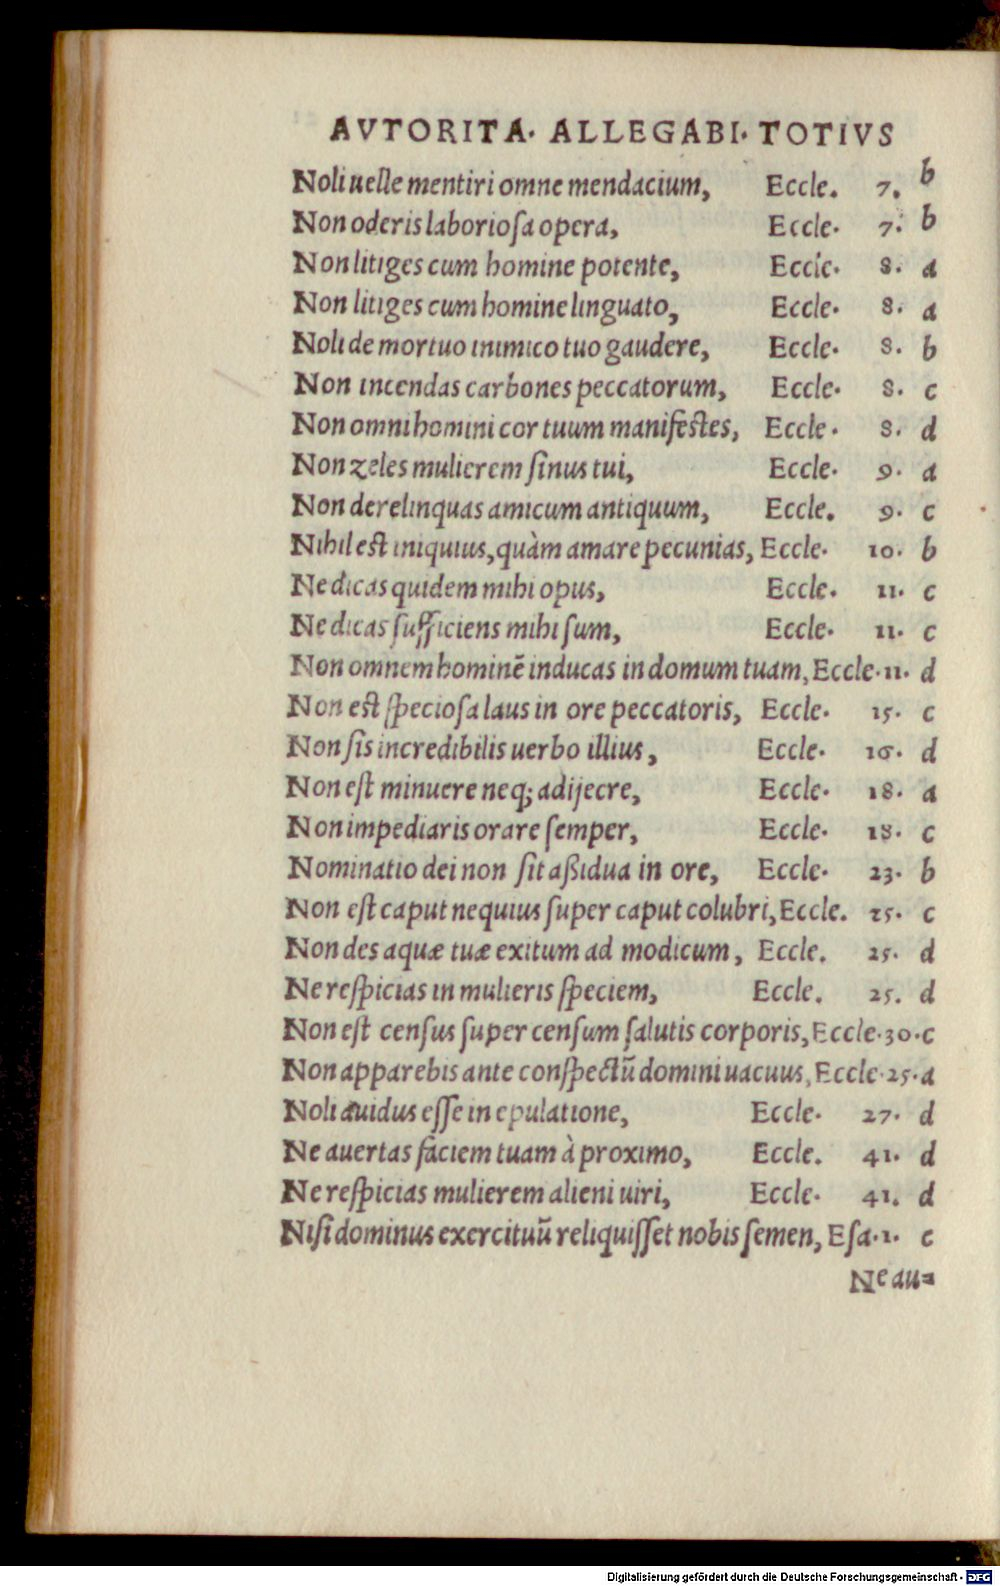 AVTORITA· ALLEGABI· TOTIVS
Noli uelle mentiri omne mendacium, Eccle. 7. b
Non oderis laboriosa opera, Eccle· 7· b
Non litiges cum homine potente, Eccle· 8· a
Non litiges cum homine linguato, Eccle· 8· a
Noli de mortuo inimico tuo gaudere, Eccle· 8· b
Non incendas carbones peccatorum, Eccle· 8· c
Non omni homini cor tuum manifestes, Eccle· 8· d
Non zeles mulierem sinus tui, Eccle· 9· a
Non derelinquas amicum antiquum, Eccle. 9· c
Nihil est iniquius, quàm amare pecunias, Eccle· 10· b
Ne dicas quidem mihi opus, Eccle. 11· c
Ne dicas sufficiens mihi sum, Eccle· 11· c
Non omnem hominē inducas in domum tuam, Eccle·11· d
Non est speciosa laus in ore peccatoris, Eccle· 15· c
Non sis incredibilis uerbo illius, Eccle· 16· d
Non est minuere neq; adijecre, Eccle· 18· a
Non impediaris orare semper, Eccle· 18· c
Nominatio dei non sit aßidua in ore, Eccle· 23· b
Non est caput nequius super caput colubri, Eccle. 25· c
Non des aquæ tuæ exitum ad modicum, Eccle. 25· d
Ne respicias in mulieris speciem, Eccle. 25. d
Non est census super censum salutis corporis, Eccle·30·c
Non apparebis ante conspectū domini uacuus, Eccle·25·a
Noli auidus esse in epulatione, Eccle· 27· d
Ne auertas faciem tuam à proximo, Eccle. 41· d
Ne respicias mulierem alieni uiri, Eccle· 41. d
Nisi dominus exercituū reliquisset nobis semen, Esa·1· c
Ne au=
Digitalisierung gefördert durch die Deutsche Forschungsgemeinschaft - DFG